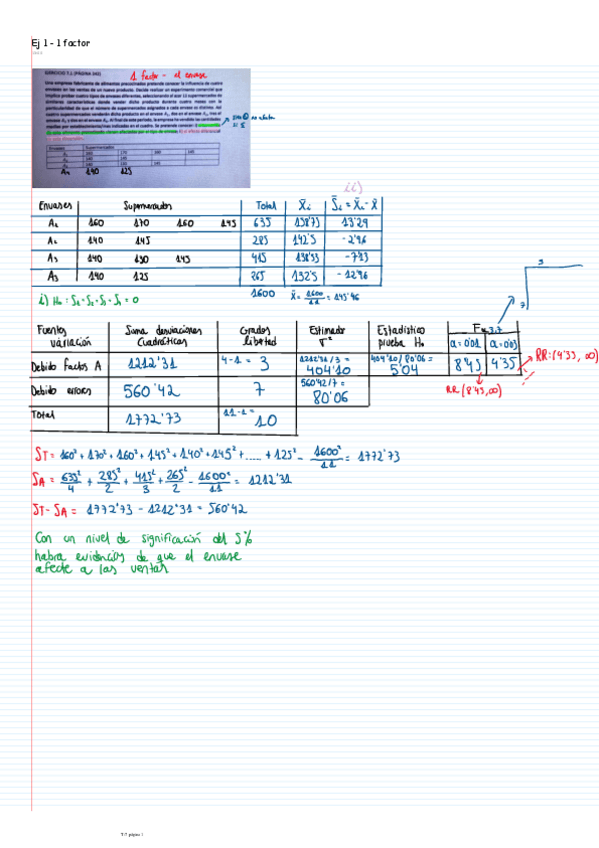 Ej 1 - 1 factor
EJERCICIO T.1 (PÁGINA 343)
1 factor - el envase
Una empresa fabricante de alimentos precocinados pretende conocer la influencia de cuatro
envases en las ventas de un nuevo producto. Decide realizar un experimento comercial que
implica probar cuatro tipos de envases diferentes, seleccionando al azar
similares características donde vender dicho producto durante cuatro meses con la
particularidad de que el número de supermercados asignados a cada envase es distinto. Así
cuatro supermercados venderán dicho producto en el envase A₁, dos en el envase A₂, tres el
envase A₃ y dos en el envase A₄. Al final de este período, la empresa ha vendido las cantidades
no afecta
Envases Supermercados
A₄ 140 125
ii)
Envases Supermercados Total X̄i Ŝi = X̄i - X̄
A₁ 160 170 160 145 635 158'75 13'29
A₂ 140 145 285 142'5 -2'96
A₃ 140 130 145 415 138'33 -7'13
A₃ 140 125 265 132'5 -12'96
1600 X̄ = 1600/11 = 145'46
i) H₀ : S₁ = S₂ = S₃ = S₄ = 0
3
7
Fuentes variación Suma desviaciones Cuadráticas Grados libertad Estimador σ² Estadístico prueba H₀ F 3,7
α = 0'01 α = 0'05
Debido factos A 1212'31 4-1 = 3 1212'31/3 = 404'10 404'10/80'06 = 5'04 8'45 4'35
RR: (4'35, ∞)
RR (8'45, ∞)
Debido errores 560'42 7 560'42/7 = 80'06
Total 1772'73 11-1 = 10
ST = 160² + 170² + 160² + 145² + 140² + 145² + ..... + 125² - 1600²/11 = 1772'73
SA = 635²/4 + 285²/2 + 415²/3 + 265²/2 - 1600²/11 = 1212'31
ST - SA = 1772'73 - 1212'31 = 560'42
Con un nivel de significación del 5%
habra evidencias de que el envase
afecte a las ventas